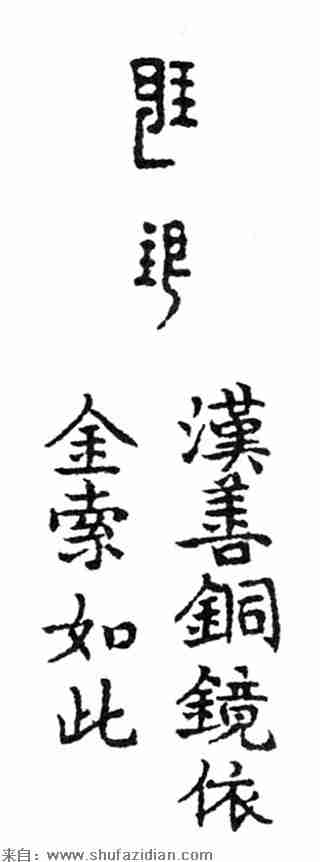 漢善銅鏡依
金索如此
来自：www.shufazidian.com